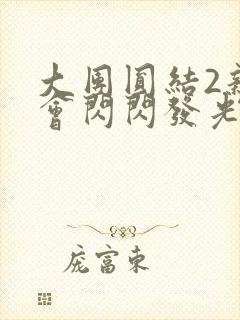 大團圓結2新
會閃閃發光
庞富東